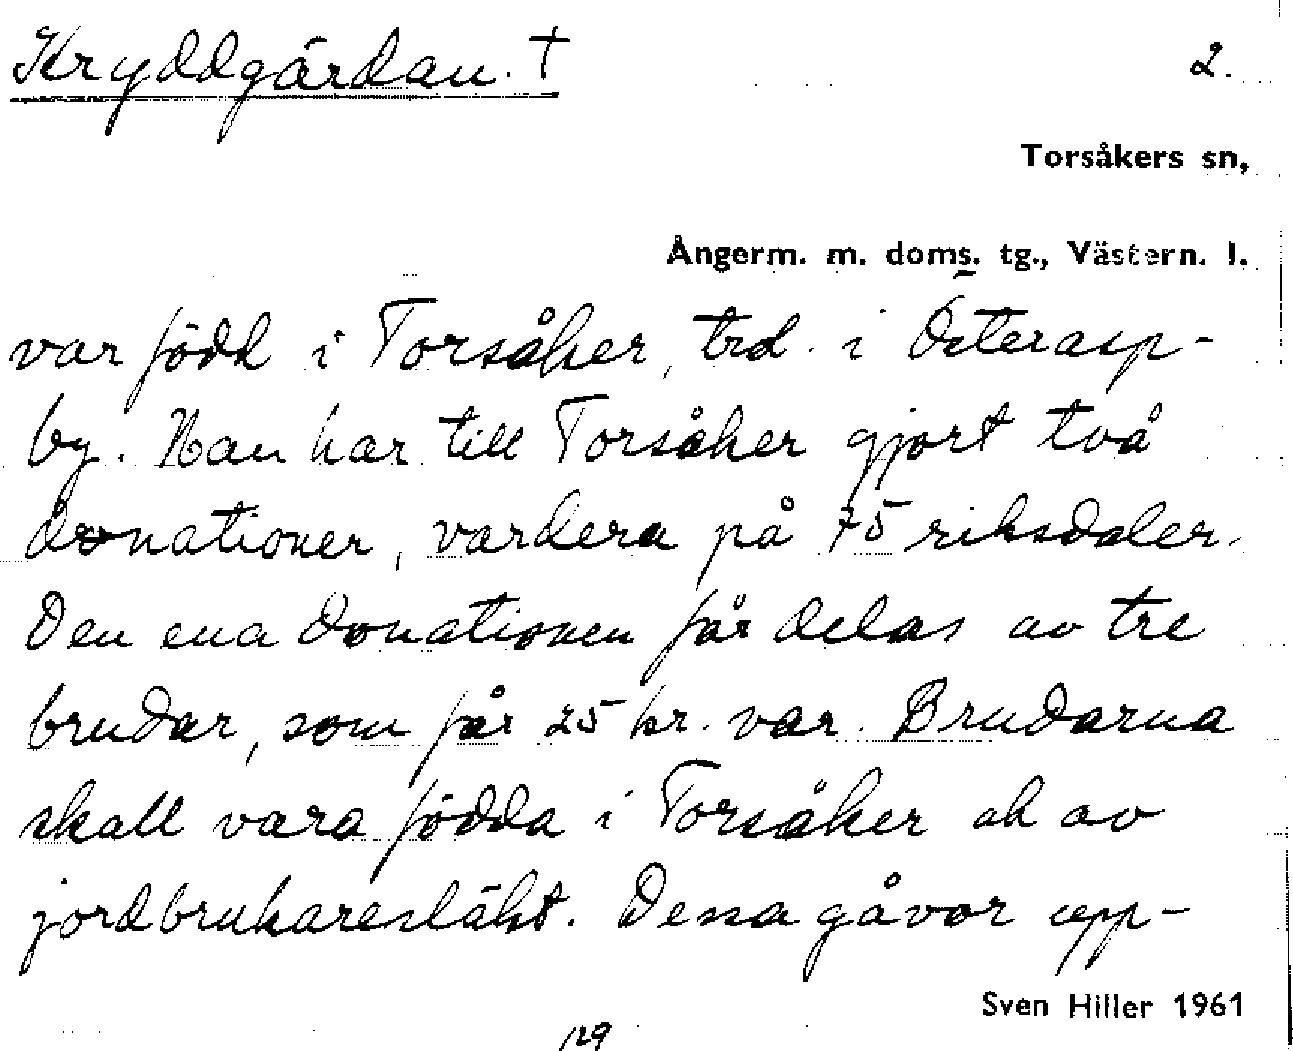 Kryddgårdan. †
2.
Torsåkers sn,
Ångerm. m. doms. tg., Västern. l.
var född i Torsåker, trd. i Österasp-
by. Han har till Torsåker gjort två
donationer, vardera på 75 riksdaler.
Den ena donationen får delas av tre
brudar, som får 25 kr. var. Brudarna
skall vara födda i Torsåker ok av
jordbrukaresläkt. Dessa gåvor upp-
Sven Hiller 1961
129